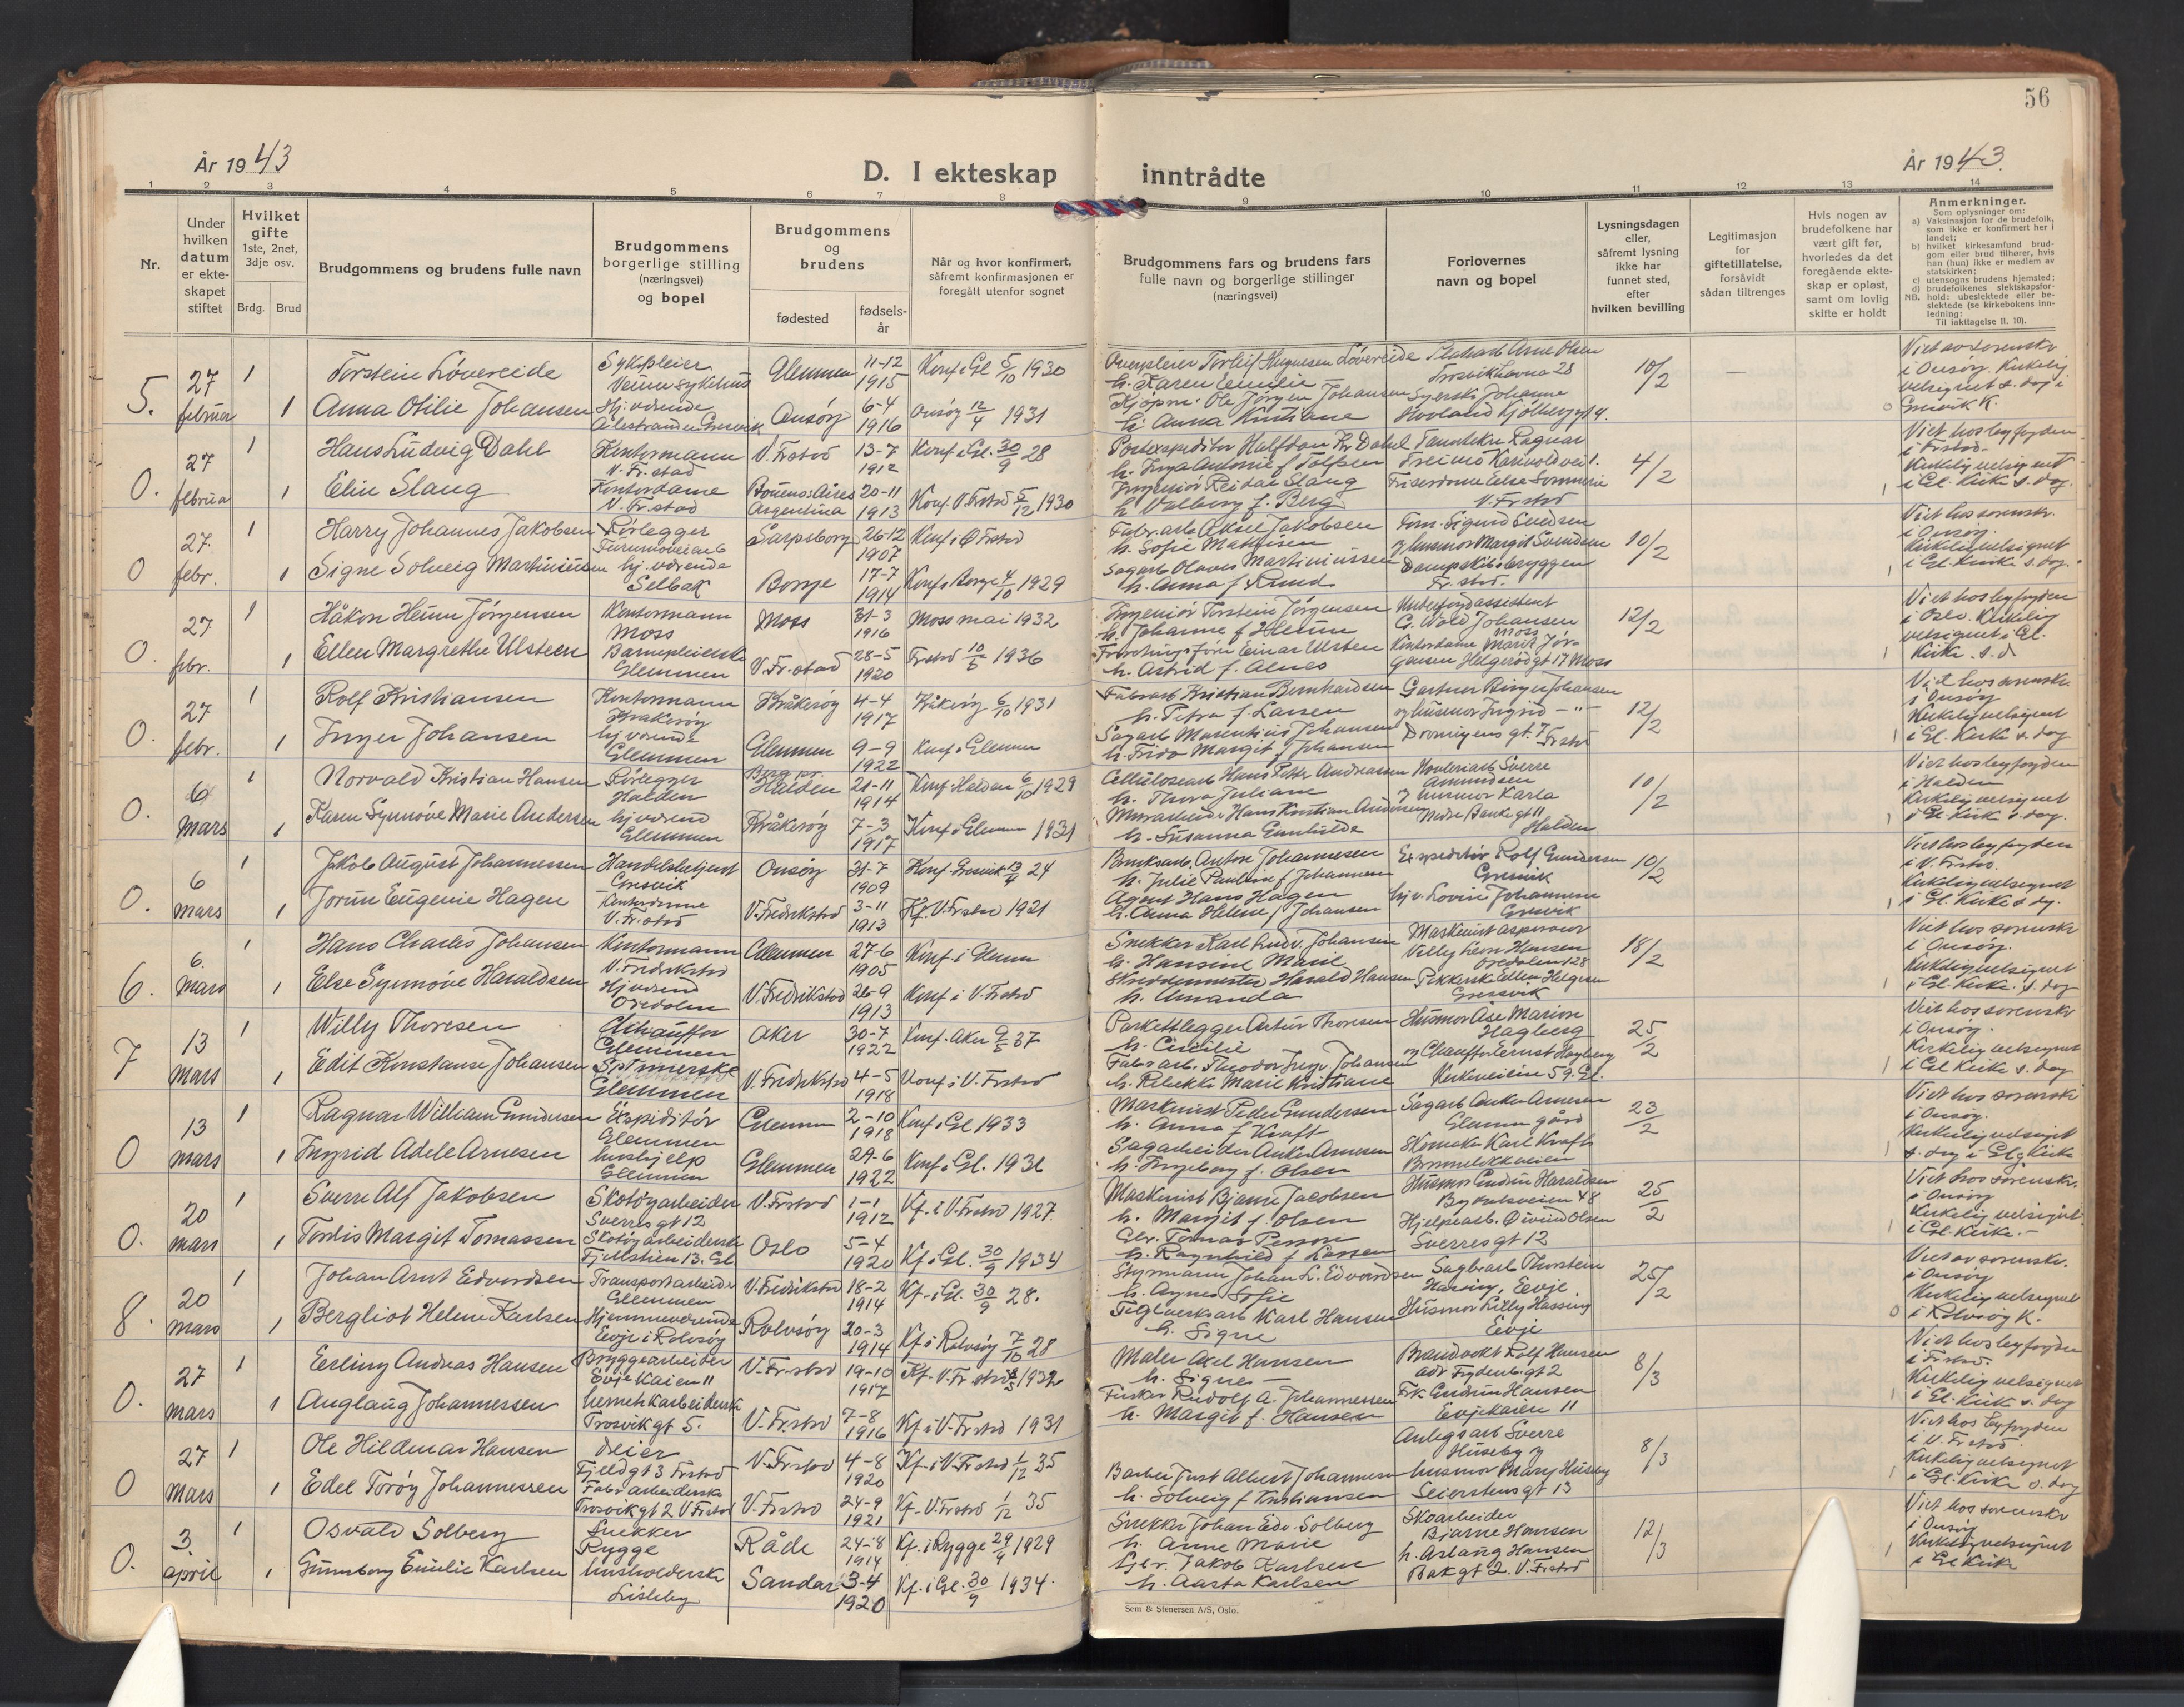 56
År 1943
D. I ekteskap inntrådte
År 1943.
1 2 3 4 5 6 7 8 9 10 11 12 13 14
Nr.
Under hvilken datum er ekteskapet stiftet
Hvilket gifte 1ste, 2net, 3dje osv.
Brdg. Brud
Brudgommens og brudens fulle navn
Brudgommens borgerlige stilling (næringsvei) og bopel
Brudgommens og brudens
fødested
fødselsår
Når og hvor konfirmert, såfremt konfirmasjonen er foregått utenfor sognet
Brudgommens fars og brudens fars fulle navn og borgerlige stillinger (næringsvei)
Forlovernes navn og bopel
Lysningsdagen eller, såfremt lysning ikke har funnet sted, efter hvilken bevilling
Legitimasjon for giftetillatelse, forsåvidt sådan tiltrenges
Hvis nogen av brudefolkene har vært gift før, hvorledes da det foregående ekteskap er opløst, samt om lovlig skifte er holdt
Anmerkninger.
Som oplysninger om:
a) Vaksinasjon for de brudefolk, som ikke er konfirmert her i landet;
b) hvilket kirkesamfund brudgom eller brud tilhører, hvis han (hun) ikke er medlem av statskirken;
c) utensogns brudens hjemsted;
d) brudefolkenes slektskapsforhold: ubeslektede eller beslektede (se kirkebokens innledning:
NB. Til iakttagelse II. 10).
5. 27 februar
1 Torstein Løvereide Sykepleier Veum sykehus Glemmen 11-12 1915 Konf. i Gl 5/10 1930
1 Anna Otilie Johansen Hj. værende Onsøy 6-4 1916 Onsøy 12/4 1931
h. Karen Emilie
Kjøpm. Ole Jørgen Johansen
h. Anna Kristiane
Arne Olsen
10/2 —
Viet av sorenskr. i Onsøy. Kirkelig velsignet s. dag i Gresvik K.
0. 27 februa
1 Hans Ludvig Dahl Kontormann V. Fr.stad V. Frstad 13-7 1912 Konf. i Gl. 30/9 28
1 Elin Slang Kontordame V. Fr.stad Buenos Aires Argentina 20-11 1913 Konf. V. Frstad 5/12 1930
Postexpeditør Halfdan Kr Dahl
Ingeniør Reidar Slang
h. Valborg f. Berg
V. Frstad
4/2
Viet hos byfogden i Frstad. Kirkelig velsignet i Gl. Kirke s. dag.
0 27. febr.
1 Harry Johannes Jakobsen Rørlegger Sarpsborg 26-12 1907 Konf i Ø Frstad
1 Signe Solveig Martiniusen hj. værende Selbak Borge 17-7 1914 Konf i Borge 4/10 1929
Fabr. arb Aksel Jakobsen
h. Sofie Mathisen
Sagarb Olaves Martiniussen
h. Anna f Rund
Sigurd Svendsen
og husmor Margit Svendsen
Dampskibsbryggen
Fr. stad.
10/2
Viet hos sorenskr. i Onsøy. Kirkelig velsignet i Gl. Kirke s. dag.
0. 27 febr.
1 Håkon Heum Jørgensen Kontormann Moss Moss 31-3 1916 Moss mai 1932
1 Ellen Margrethe Ulsteen Barnepleierske Glemmen V. Fr.stad 28-5 1920 Frstad 10/5 1936
Ingeniør Torstein Jørgensen
h. Johanne f Heum
h. Astrid f. Aenes
C. Wold Johansen Moss
Kontordame Marit Jørgensen Helgerødgt 17 Moss
12/2
Viet hos byfogden i Oslo. Kirkelig velsignet i Gl. Kirke. s. d
0. 27 febr.
1 Rolf Kristiansen Kontormann Kråkerøy Kråkerøy 4-4 1917 Kråkerøy 6/10 1931
1 Inger Johansen hj værende Glemmen Glemmen 9-9 1922 Konf. i Glemmen
Fabrarb Kristian Bernhardsen
h. Petra f. Larsen
Sagarb Marentius Johansen
h. Frida Margit f Johansen
Gartner Birger Johansen
og husmor Ingrid — " —
Dronningensgt. 7 Frstad
12/2
Viet hos sorenskr. i Onsøy Kirkelig velsignet i Gl. Kirke s. dag
0. 6 mars
1 Norvald Kristian Hansen Rørlegger Halden Halden 21-11 1914 Konf. i Halden 6/10 1929
1 Karen Synnøve Marie Andersen hj værend Glemmen Kråkerøy 7-3 1917 Konf. i Glemmen 1931
Cellulosearb Hans Petter Andreassen
h. Thora Juliane
Murarbeider Hans Kristian Andersen
h. Susanna Gunhilde
Sverre Amundsen
og husmor Karla
Nedre Bankegt 11
Halden
10/2
Viet hos byfogden i Halden Kirkelig velsignet i Gl. Kirke s. dag.
0. 6 mars
1 Jakob August Johannessen Handelsbetjent Gresvik Onsøy 31-7 1909 Konf. Gresvik 13/4 24
1 Jorun Eugenie Hagen Kontordame V. Fr.stad V. Fredrikstad 3-11 1913 Kf. V. Frstad 1921
Bruksarb. Anton Johannesen
h. Julie Pauline f Johannesen
Agent Hans Hagen
h. Anna Helene f Johansen
Expeditør Rolf Gundersen
Gresvik
hj v. Lovise Johannesen
Gresvik
10/2
Viet hos byfogden i V. Frstad. Kirkelig velsignet i Gl. Kirke s. dg.
6. 6. mars
1 Hans Charles Johansen Kontormann V. Fredrikstad Glemmen 27-6 1905 Konf. i Glemm
1 Else Synnøve Haraldsen Hj værend Oredalen V. Fredrikstad 26-9 1913 Konf i V. Frstad
Snekker Karl Ludv. Johansen
h. Hansine Marie
Skreddermester Harald Hansen
h. Amanda
Maskinist aspirant
Villy Leon Hansen
Oredalen 128
Ellen Helgesen
Gressvik
18/2
Viet hos sorenskr i Onsøy. Kirkelig velsignet i Gl. Kirke. s. dag
7 13 mars
1 Willy Thoresen Chauffør Glemmen Aker 30-7 1922 Konf. Aker 9/5 37
1 Edit Konstanse Johansen Glemmen V. Fredrikstad 4-5 1918 Konf i V. Frstad
Parkettlegger Artur Thoresen
h. Cecilie
Fabr arb. Theodor Inge Johansen
h. Rebekka Marie Kristiane
Husmor Åse Marion Hagberg
og Chauffør Ernst Hagberg
Kirkeveien 59. Gl.
25/2
Viet hos sorenskr i Onsøy. Kirkelig velsignet i Gl Kirke s. dag
0 13 mars
1 Ragnar William Gundersen Ekspeditør Glemmen Glemmen 2-10 1918 Konf. i Gl 1933
1 Ingrid Adele Arnesen hushjelp Glemmen Glemmen 29-6 1922 Konf. i Gl.
Maskinist Peder Gundersen
h. Anna f Kraft
Sagarbeider Anker Arnesen
h. Ingeborg f. Olsen
Sagarb Anker Arnesen
Glemmen gård
Skomaker Karl Kraft
23/2
Viet hos sorenskr i Onsøy. Kirkelig velsignet s. dag i Gl. Kirke
0. 20 mars
1 Sverre Alf Jakobsen Skotøyarbeider Sverresgt 12 V. Frstad 1-1 1912 Kf. i V. Frstad 1927.
1 Tordis Margit Tomassen Skotøyarbeiderske Fjellstien 13. Gl. Oslo 5-4 1920 Kf i Gl. 30/9 1934
Maskinist Bjarne Jacobsen
h. Margit f. Olsen
Tomas Persson
h. Ragnhild f Larsen
Husmor Gudrun Haraldsen
Hjelpearb. Øivind Olsen
Sverresgt 12
25/2
Viet hos sorenskr. i Onsøy Kirkelig velsignet i Gl. Kirke. —
8. 20 mars
1 Johan Arnt Edvardsen Transportarbeider Glemmen V. Fredrikstad 18-2 1914 Kf. i Gl. 30/9 28.
1 Bergliot Helene Karlsen Hjemmeværende Evje i Rolvsøy Rolvsøy 20-3 1914 Kf i Rolvsøy 7/10 28
Styrmann Johan L. Edvardsen
h. Agnes Sofie
Teglverksarb Karl Hansen
h. Signe
Thorstein Hassing, Evje
Husmor Lilly Hassing
Evje
25/2
Viet av sorenskr. i Onsøy Kirkelig velsignet i Rolvsøy K.
0. 27 mars
1 Erling Andreas Hansen Bryggearbeider Evjekaien 11 V. Fr.stad 19-10 1917 Kf. V. Fr.stad 1932
1 Auglaug Johannessen hermetikarbeiderske Trosvikgt 5. V. Frstad 7-8 1916 Kf i V. Frstad 1931
Maler Axel Hansen
h. Signe —
Fisker Rudolf A. Johannessen
h. Margit f. Hansen
Brandvakt Rolf Hansen
Frk. Gudrun Hansen
Evjekaien 11
8/3
Viet hos byfogden i Frstad. Kirkelig velsignet i Gl. Kirke s. dag
0 27 mars
1 Ole Hildmar Hansen Fjeldgt 3 Frstad V. Frstad 4-8 1920 Kf. i V. Frstad 1/12 35
1 Edel Torøy Johannessen Fabr arbeiderske Trosvikgt 2 V Frstad V. Frstad 24-9 1921 Kf. V. Frstad 1/12 35
Barber Just Albert Johannesen
h. Solveig f Kristiansen
Anlegsarb Sverre Huseby og
husmor Mary Huseby
Seierstensgt 13
8/3
Viet hos byfogden i V. Frstad. Kirkelig velsignet i Gl. Kirke s. dag
0. 3. april
1 Osvald Solberg Snekker Rygge Råde 24-8 1914 Kf. i Rygge 29/9 1929
1 Gunnborg Emilie Karlsen husholderske Lisleby Sandar 3-4 1920 Kf. i Gl. 30/9 1934.
Snekker Johan Edv. Solberg
h. Anne Marie
Jakob Karlsen
h. Aasta Karlsen
Skoarbeider
Bjarne Hansen
h. Aslaug Hansen
Bakgt 2. V. Frstad
12/3
Viet hos sorenskr i Onsøy Kirkelig velsignet i Gl Kirke
Sem & Stenersen A/S, Oslo.